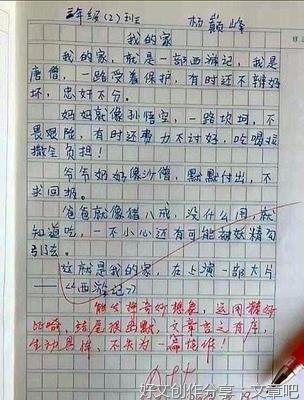 三年级(2)班 杨巅峰
我的家
我的家,就是一部西游记,我是
唐僧,一路受着保护,有时还不辨好
坏,忠奸不分。
妈妈就像孙悟空,一路坎坷,不
畏艰险,有时还费力不讨好,吃喝拉
撒全负担!
爷爷奶奶像沙僧,默默付出,不
求回报。
爸爸就像猪八戒,没什么用,就
知道吃,一不小心还有可能被妖精勾
引去。
这就是我的家,在上演一部大片
——《西游记》
能发挥奇妙想象,运用精妙
比喻,结尾很幽默,文章言之有序,
生动具体,不失为一篇佳作!
好文创作分享—文章吧